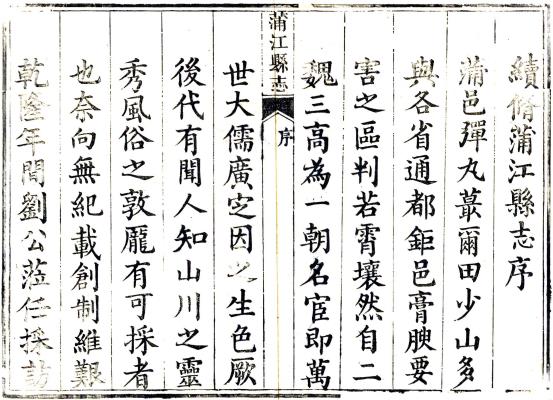 續脩蒲江縣志序
蒲邑彈丸蕞爾田少山多
與各省通都鉅邑膏腴要
害之區判若霄壤然自二
魏三高為一朝名宦即萬
蒲江縣志
序
世大儒廣之因之生色厥
後代有聞人知山川之靈
秀風俗之敦龐有可採者
也奈向無紀載創制維艱
乾隆年間劉公蒞任採訪